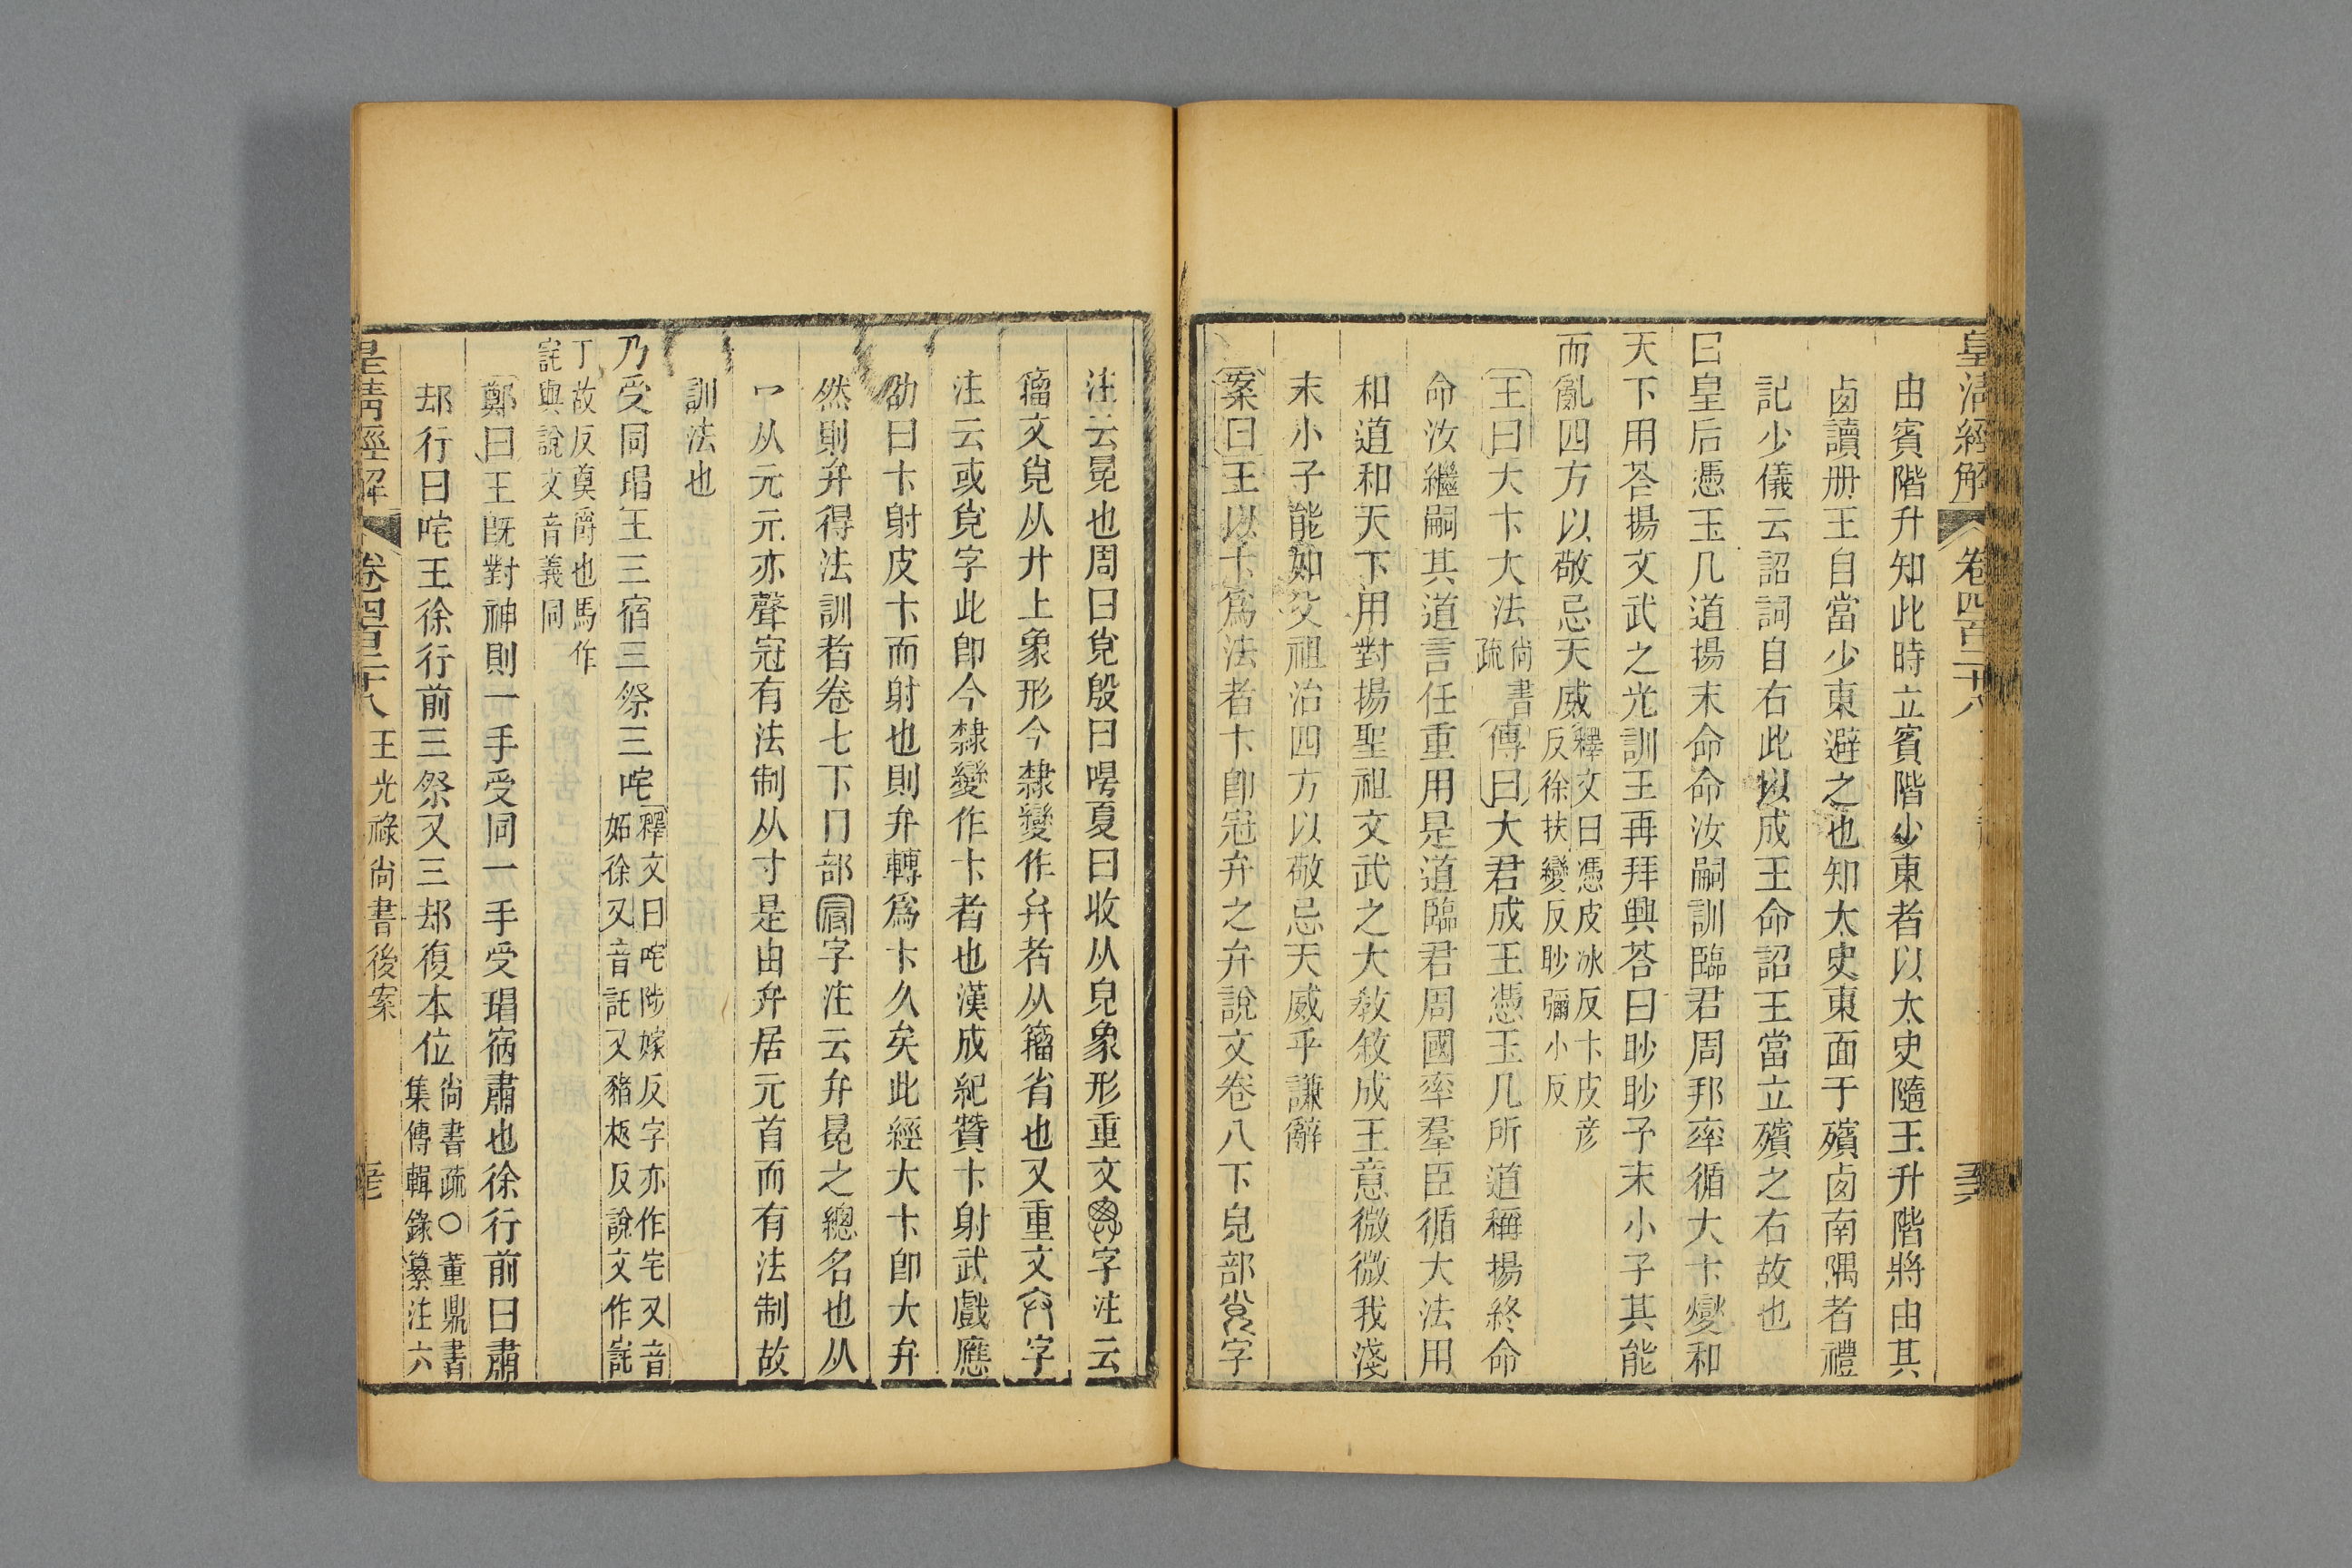 皇清經解 卷四百二十八
由賓階升知此時立賓階少東者以太史隨王升階將由其
卤讀册王自當少東避之也知太史東面于殯卤南隅者禮
記少儀云詔詞自右此以成王命詔王當立殯之右故也
曰皇后憑玉几道揚末命命汝嗣訓臨君周邦率循大卞燮和
天下用荅揚文武之光訓王再拜興荅曰眇眇予末小子其能
而亂四方以敬忌天威釋文曰憑皮冰反卞皮彦
反徐扶變反眇彌小反
王曰大卞大法尚書
疏傳曰大君成王憑玉几所道稱揚終命
命汝繼嗣其道言任重用是道臨君周國率羣臣循大法用
和道和天下用對揚聖祖文武之大敎敘成王意微微我淺
末小子能如父祖治四方以敬忌天威乎謙辭
案曰王以卞爲法者卞卽冠弁之弁說文卷八下皃部字
注云冕也周曰覍殷曰吚夏曰收从皃象形重文字注云
籒文覍从廾上象形今隸變作弁者从籒省也又重文字
注云或覍字此卽今隸變作卞者也漢成紀贊卞射武戲應
劭曰卞射皮卞而射也則弁轉爲卞久矣此經大卞卽大弁
然則弁得法訓者卷七下冂部冠字注云弁冕之總名也从
冖从元元亦聲冠有法制从寸是由弁居元首而有法制故
訓法也
乃受同瑁王三宿三祭三咤釋文曰咤陟嫁反字亦作宅又音
妬徐又音託又豬柩反說文作詫
丁故反奠爵也馬作
詫與說文音義同
鄭曰王既對神則一手受同一手受瑁宿肅也徐行前曰肅
却行曰咤王徐行前三祭又三却復本位尚書疏〇董鼎書
集傳輯錄纂注六
皇清經解 卷四百二十八 王光祿尚書後案